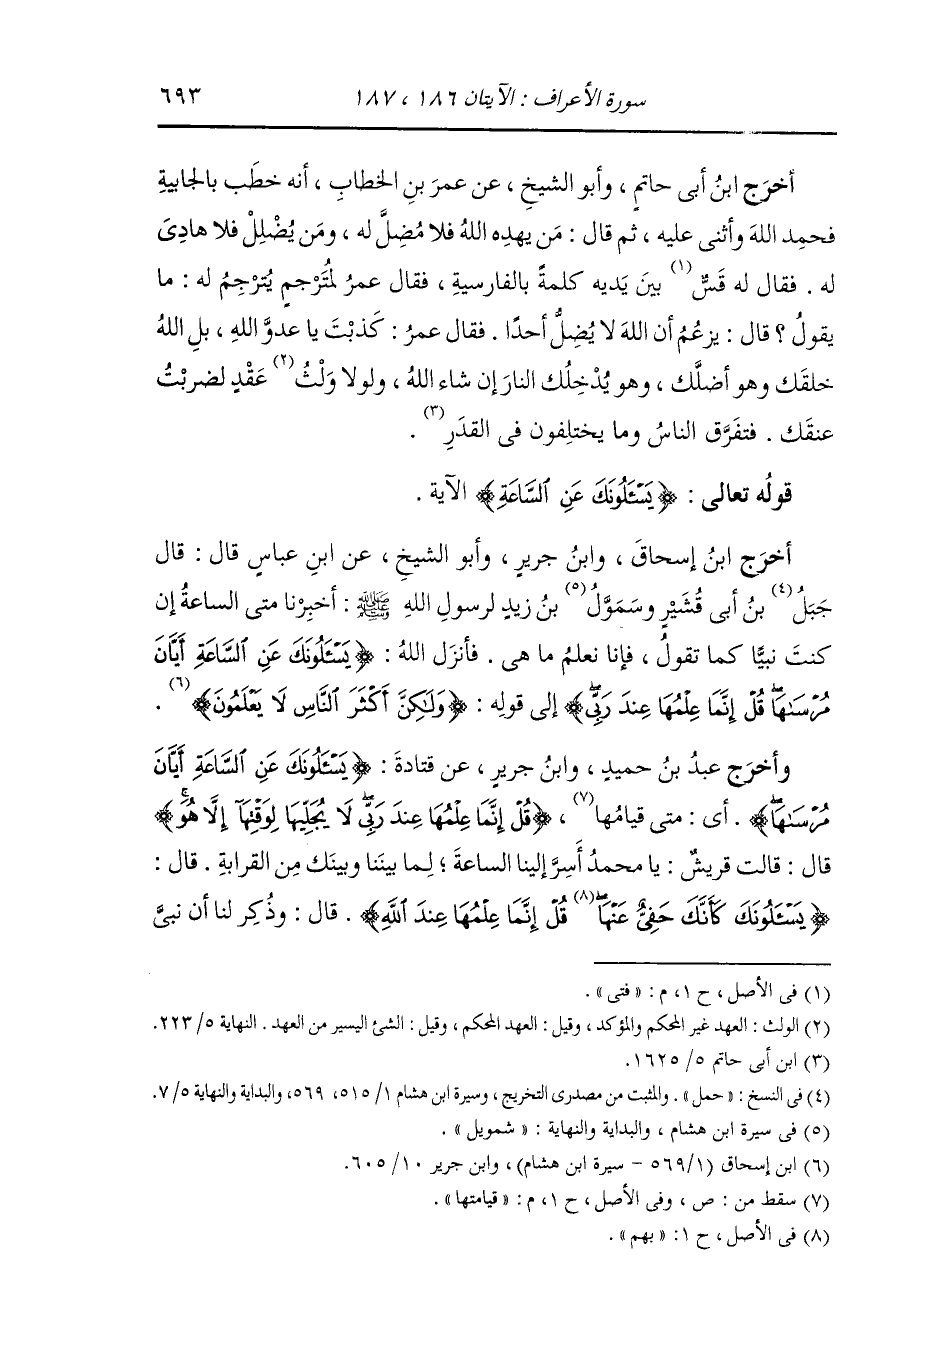 سورة الأعراف : الآيتان ١٨٦ ، ١٨٧ ٦٩٣
أخرَج ابنُ أبى حاتمٍ ، وأبو الشيخِ ، عن عمرَ بنِ الخطابِ ، أنه خطَب بالجابيةِ
فحمِد اللهَ وأثنى عليه ، ثم قال : مَن يهدِه اللهُ فلا مُضِلَّ له ، ومَن يُضْلِلْ فلا هادِىَ
له . فقال له قَسٌّ(١) بينَ يَديه كلمةً بالفارسيةِ ، فقال عمرُ لمُتَرْجمٍ يُتَرْجِمُ له : ما
يقولُ ؟ قال : يزعُمُ أن اللهَ لا يُضِلُّ أحدًا . فقال عمرُ : كَذبْتَ يا عدوَّ اللهِ ، بلِ اللهُ
خلقَك وهو أضلَّك ، وهو يُدْخِلُك النارَ إن شاء اللهُ ، ولولا وَلْثُ(٢) عَقْدٍ لضربْتُ
عنقَك . فتفَرَّق الناسُ وما يختلِفون فى القدَرِ(٣) .
قولُه تعالى : ﴿يَسْـَٔلُونَكَ عَنِ ٱلسَّاعَةِ﴾ الآية .
أخرَج ابنُ إسحاقَ ، وابنُ جريرٍ ، وأبو الشيخِ ، عن ابنِ عباسٍ قال : قال
جَبَلُ(٤) بنُ أبى قُشَيْرٍ وسَمَوَّلُ(٥) بنُ زيدٍ لرسولِ اللهِ ﷺ : أخبِرْنا متى الساعةُ إن
كنتَ نبيًّا كما تقولُ ، فإنا نعلمُ ما هى . فأنزَل اللهُ : ﴿يَسْـَٔلُونَكَ عَنِ ٱلسَّاعَةِ أَيَّانَ
مُرْسَىٰهَا ۖ قُلْ إِنَّمَا عِلْمُهَا عِندَ رَبِّى ۖ﴾ إلى قولِه : ﴿وَلَٰكِنَّ أَكْثَرَ ٱلنَّاسِ لَا يَعْلَمُونَ﴾(٦) .
وأخرَج عبدُ بنُ حميدٍ ، وابنُ جريرٍ ، عن قتادةَ : ﴿يَسْـَٔلُونَكَ عَنِ ٱلسَّاعَةِ أَيَّانَ
مُرْسَىٰهَا ۖ﴾ . أى : متى قيامُها(٧) ، ﴿قُلْ إِنَّمَا عِلْمُهَا عِندَ رَبِّى ۖ لَا يُجَلِّيهَا لِوَقْتِهَآ إِلَّا هُوَ ۚ﴾
قال : قالت قريشٌ : يا محمدُ أَسِرَّ إلينا الساعةَ ؛ لِما بيننَا وبينَك مِن القرابةِ . قال :
﴿يَسْـَٔلُونَكَ كَأَنَّكَ حَفِىٌّ عَنْهَا ۖ(٨) قُلْ إِنَّمَا عِلْمُهَا عِندَ ٱللَّهِ﴾ . قال : وذُكِر لنا أن نبىَّ
(١) فى الأصل ، ح ١، م : « فتى » .
(٢) الولث : العهد غير المحكم والمؤكد ، وقيل : العهد المحكم ، وقيل : الشئ اليسير من العهد . النهاية ٥/ ٢٢٣.
(٣) ابن أبى حاتم ٥/ ١٦٢٥.
(٤) فى النسخ : « حمل » . والمثبت من مصدرى التخريج ، وسيرة ابن هشام ١/ ٥١٥، ٥٦٩، والبداية والنهاية ٥/ ٧.
(٥) فى سيرة ابن هشام ، والبداية والنهاية : « شمويل » .
(٦) ابن إسحاق (١/ ٥٦٩ - سيرة ابن هشام) ، وابن جرير ١٠/ ٦٠٥.
(٧) سقط من : ص ، وفى الأصل ، ح ١، م : « قيامتها » .
(٨) فى الأصل ، ح ١: « بهم » .